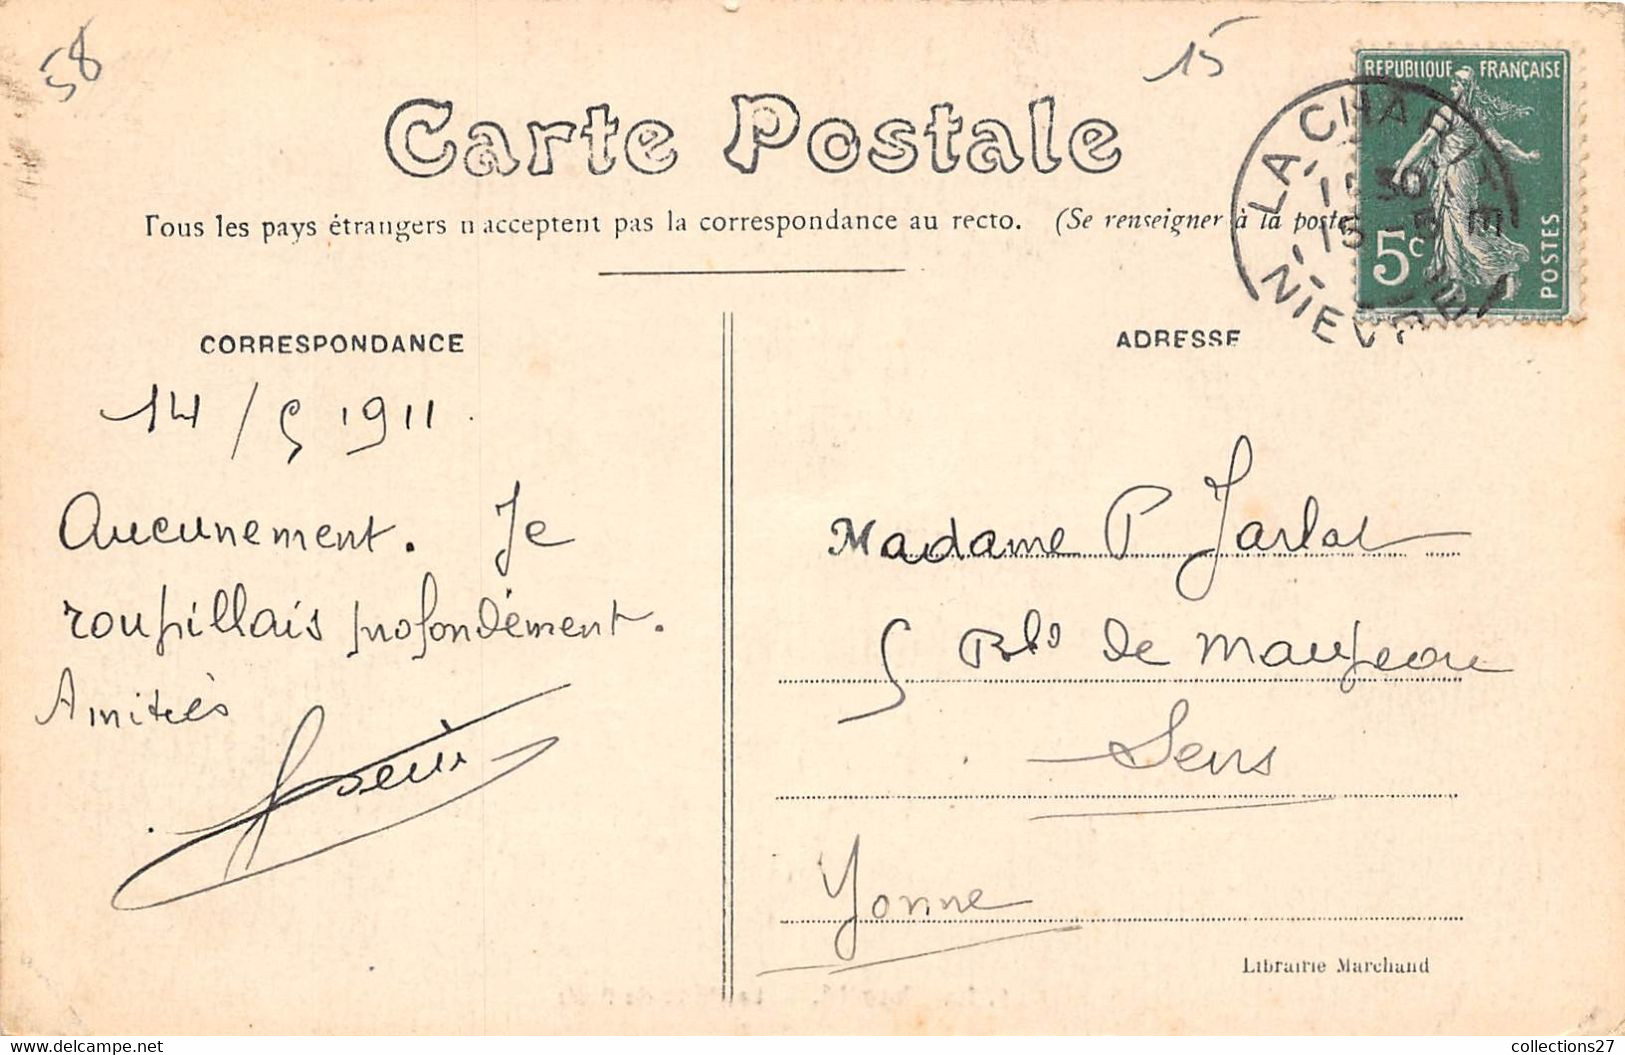 58
15
REPUBLIQUE FRANÇAISE
5c
POSTES
LA CHARITE
30
15 -5
NIEVRE
Carte Postale
Tous les pays étrangers n'acceptent pas la correspondance au recto. (Se renseigner à la poste
CORRESPONDANCE
ADRESSE
14/5 1911.
Aucunement. Je
roupillais profondément.
Amitiés
Madame P Jarlat
5 Bld de Maupeou
Sens
Yonne
Librairie Marchand
https://www.delcampe.net
collections27